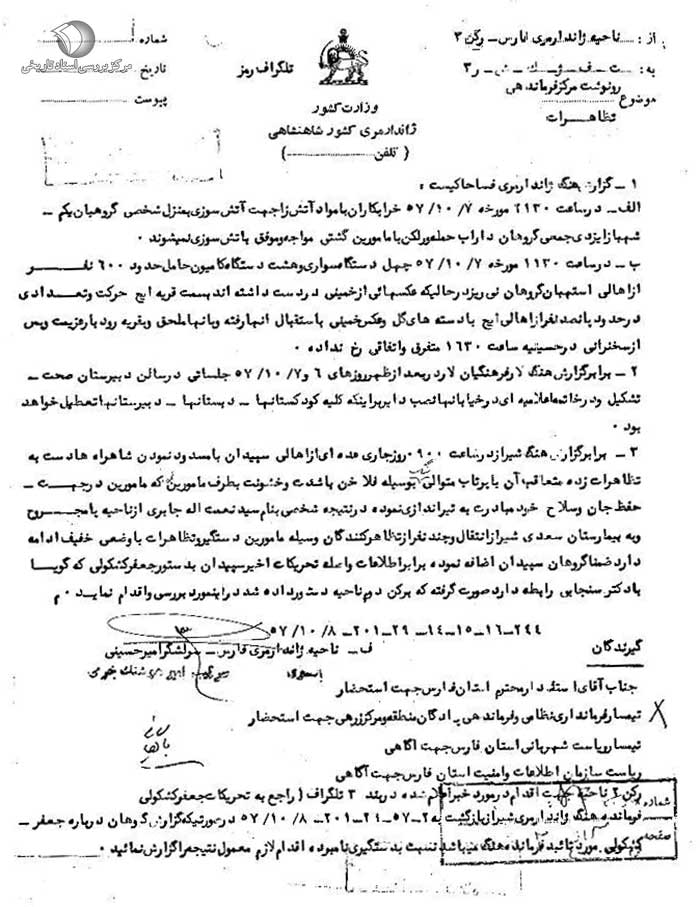 از : ناحیه ژاندارمری فارس - رکن ۳
شماره
مرکز بررسی اسناد تاریخی
تلگراف رمز
تاریخ
رونوشت مرکز فرماندهی
پیوست
موضوع
تظاهرات
وزارت کشور
ژاندارمری کشور شاهنشاهی
( تلفن )
۱ - گزارش هنگ ژاندارمری فسا حاکیست :
الف - در ساعت ۲۱۳۰ مورخه ۵۷/۱۰/۷ خرابکاران با مواد آتش زا جهت آتش سوزی بمنزل شخصی گروهبان یکم -
شهباز ایزدی جمعی گروهان داراب حمله ور لکن با مامورین گشتی مواجه و موفق باتش سوزی نمیشوند .
ب - در ساعت ۱۱۳۰ مورخه ۵۷/۱۰/۷ چهل دستگاه سواری و هشت دستگاه کامیون حامل حدود ۶۰۰ نفر و
از اهالی استهبان گروهان نی ریز در حالیکه عکسهائی از خمینی در دست داشته اند بسمت قریه ایج حرکت و تعدادی
در حدود پانصد نفر از اهالی ایج با دسته های گل و عکس خمینی باستقبال آنها رفته و بانها ملحق و بقریه رودبار عزیمت و پس
از سخنرانی در حسینیه ساعت ۱۶۳۰ متفرق و اتفاقی رخ نداده .
۲ - برابر گزارش هنگ لار فرهنگیان لار در بعد از ظهر روزهای ۶ و ۵۷/۱۰/۷ جلساتی در سالن دبیرستان صحت -
تشکیل و در خاتمه اعلامیه ای در خیابانها نصب دایر براینکه کلیه کودکستانها - دبستانها - دبیرستانها تعطیل خواهد
بود .
۳ - برابر گزارش هنگ شیراز در ساعت ۰۹۰۰ روز جاری عده ای از اهالی سپیدان با مسدود نمودن شاهراه ها دست به
تظاهرات زده متعاقب آن با پرتاب متوالی سنگ بوسیله فلاخن باشدت و خشونت بطرف مامورین که مامورین در جهت -
حفظ جان و سلاح خود مبادرت به تیراندازی نموده در نتیجه شخصی بنام سید نعمت اله جابری از ناحیه پا مجروح
و به بیمارستان سعدی شیراز انتقال و چند نفر از تظاهر کنندگان وسیله مامورین دستگیر و تظاهرات با وضعی خفیف ادامه
دارد ضمنا گروهان سپیدان اضافه نموده برابر اطلاعات واصله تحریکات اخیر سپیدان بدستور جعفر کشکولی که گویا
با دکتر سنجابی رابطه دارد صورت گرفته که برکن دوم ناحیه دستور داده شد در اینمورد بررسی و اقدام نمایند . م
۲۴۴ - ۱۶ - ۱۵ - ۱۴ - ۲۹ - ۲۰۱ - ۵۷/۱۰/۸
گیرندگان
ف - ناحیه ژاندارمری فارس - سرلشگر امیرحسینی
جناب آقای استاندار محترم استان فارس جهت استحضار
تیمسار فرمانداری نظامی و فرماندهی پادگان منطقه و مرکز زرهی جهت استحضار
تیمسار ریاست شهربانی استان فارس جهت آگاهی
ریاست سازمان اطلاعات و امنیت استان فارس جهت آگاهی
رکن ۲ ناحیه جهت اقدام در مورد خبر اعلام شده در بند ۳ تلگراف ( راجع به تحریکات جعفر کشکولی
شماره
فرمانده هنگ ژاندارمری شیراز بازگشت به ۲ - ۵۷ - ۲۴ - ۲۰۱ - ۵۷/۱۰/۸ در صورتیکه گزارش گروهان درباره جعفر -
صفحه
کشکولی مورد تائید فرمانده هنگ میباشد نسبت بدستگیری نامبرده اقدام لازم معمول نتیجه را گزارش نمائید .